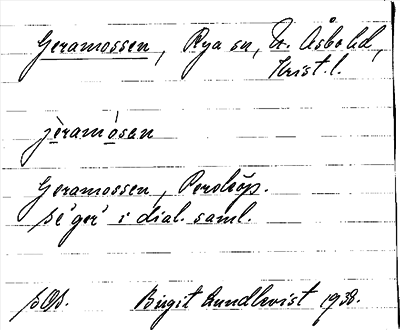 Geramossen, Rya sn, Ö. Åsbo hd,
Krist. l.
jèramósan
Geramossen, Perstorp.
se ger i dial. saml.
Birgit Lundkvist 1938.